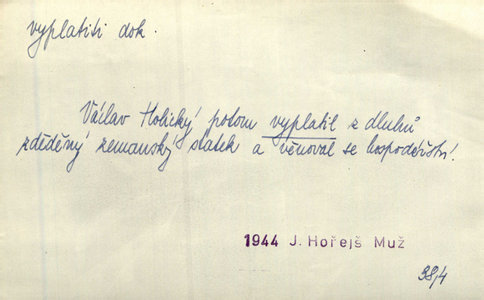 vyplatiti dok.
Václav Holický potom vyplatil z dluhů
zděděný zemanský statek a věnoval se hospodářství.
1944 J. Hořejš Muž
38/4